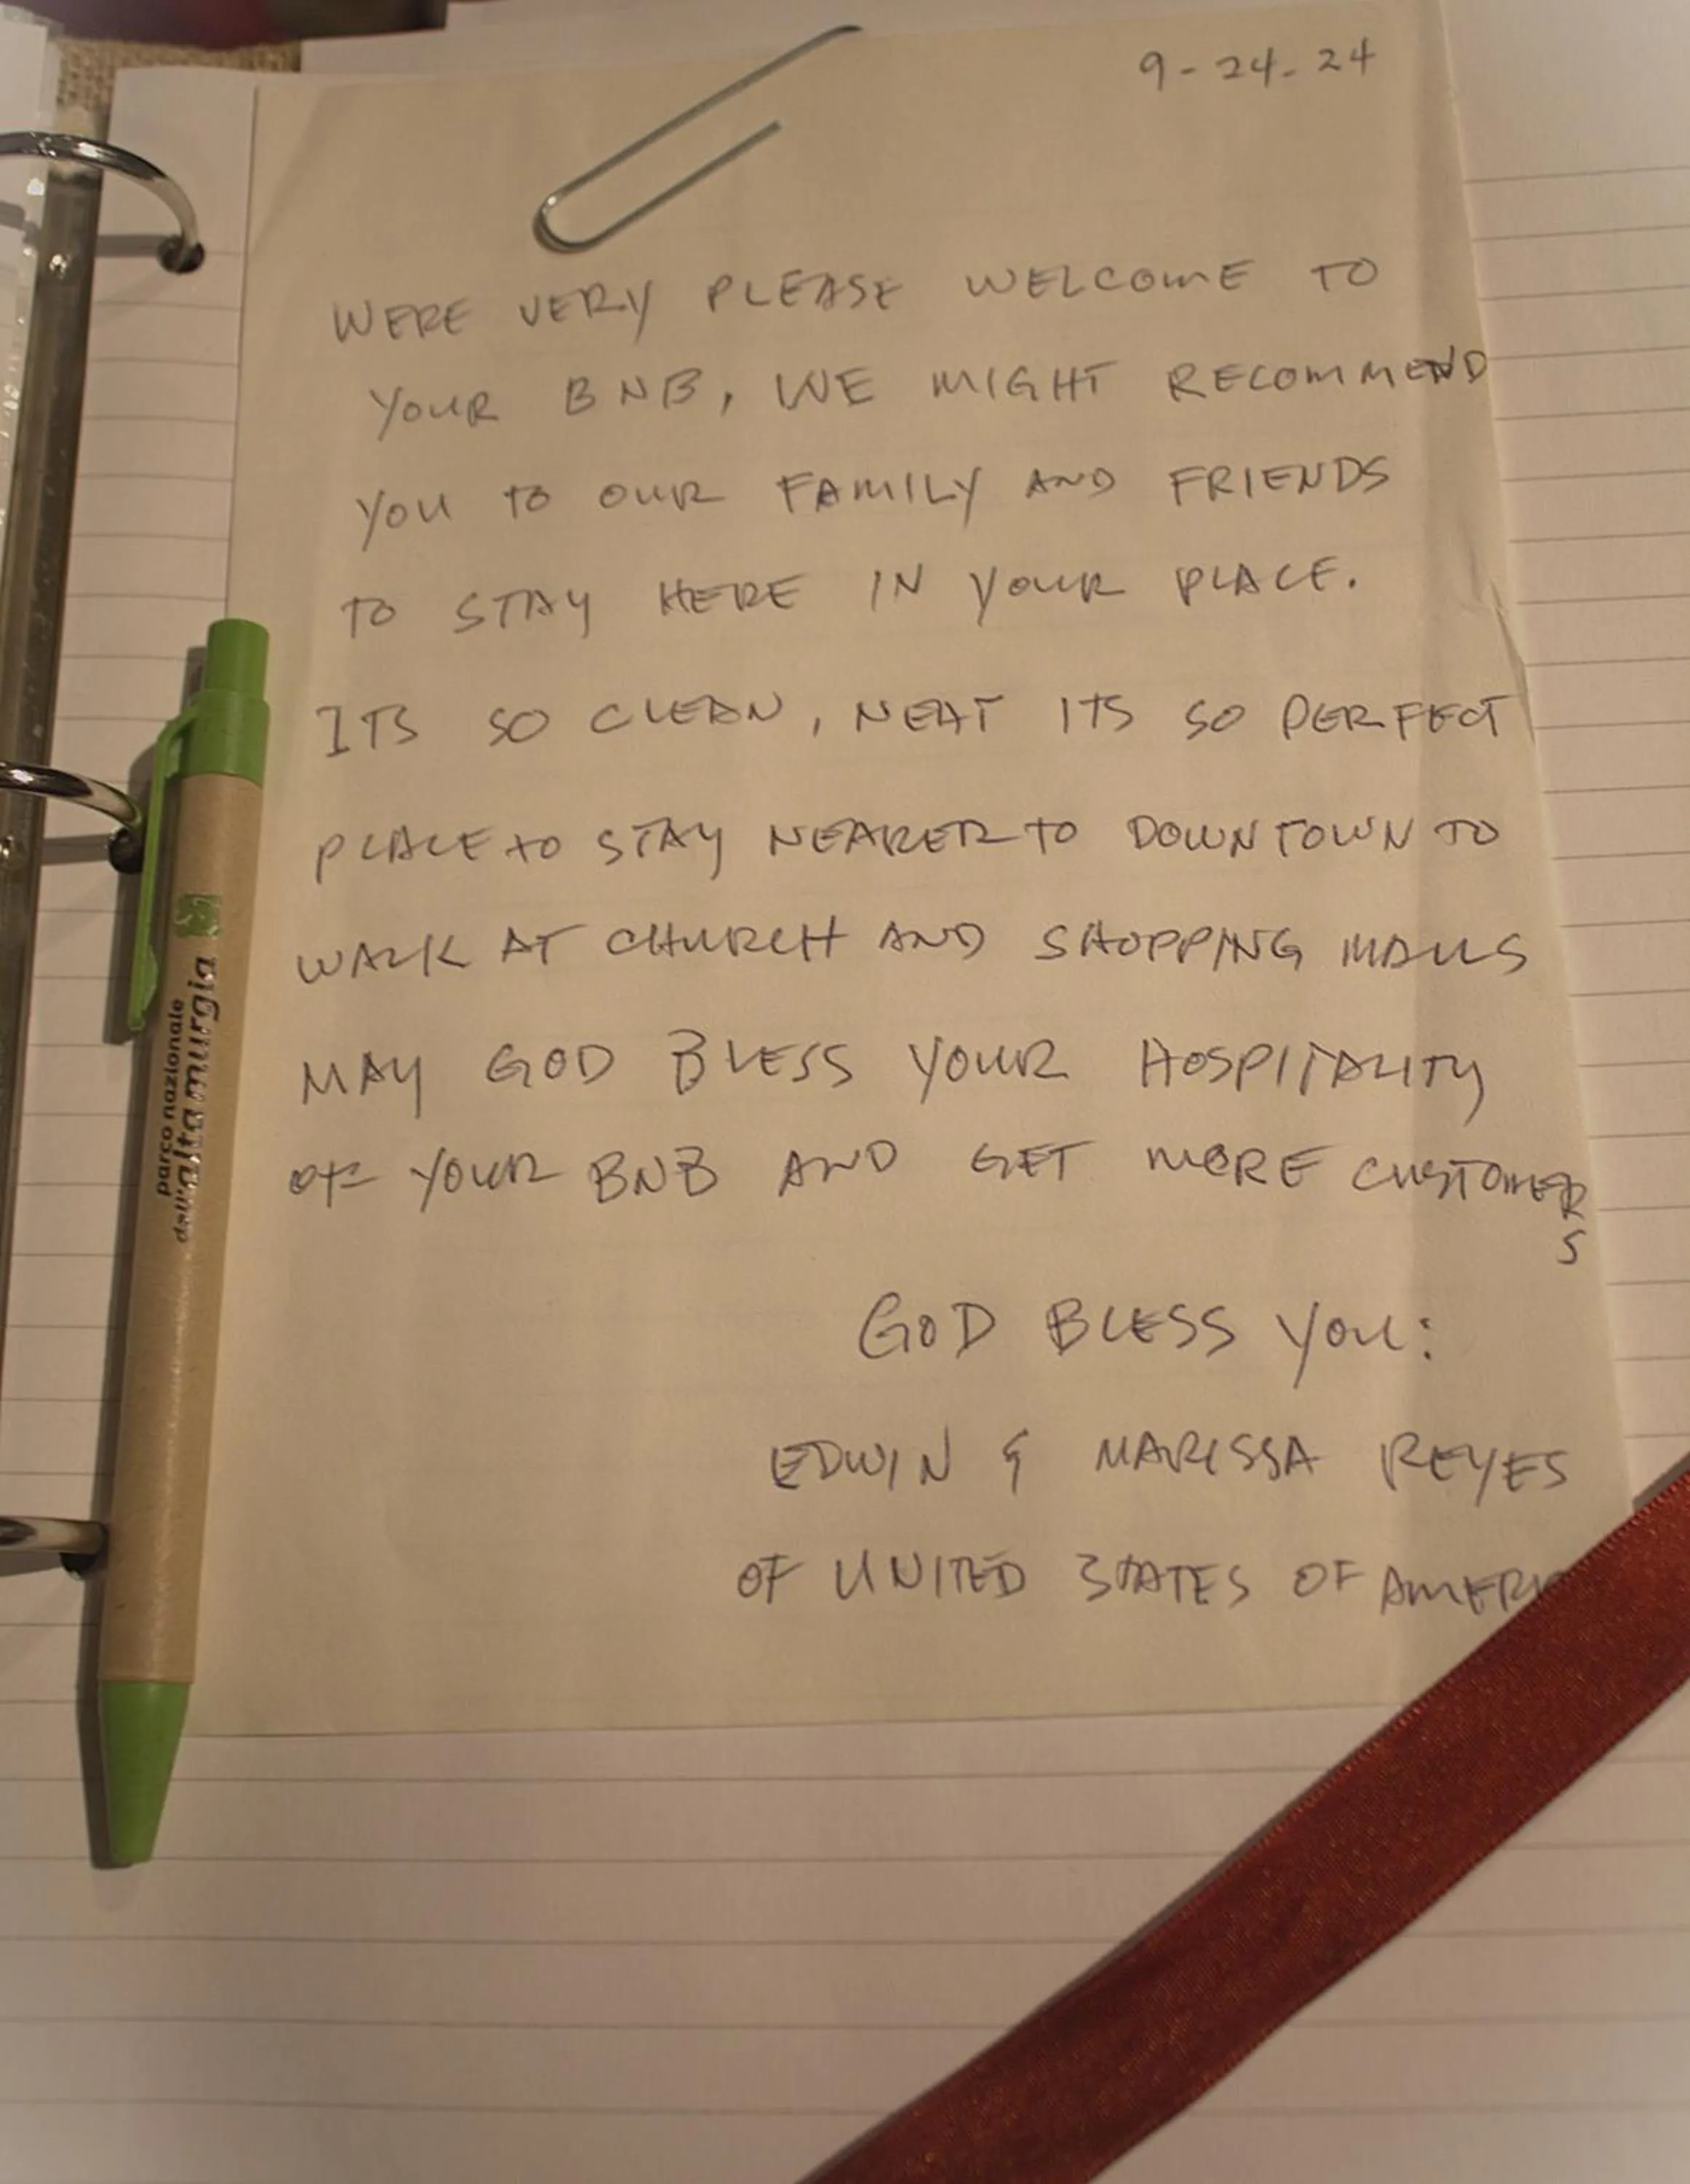 9-24-24
WERE VERY PLEASE WELCOME TO
YOUR BNB, WE MIGHT RECOMMEND
YOU TO OUR FAMILY AND FRIENDS
TO STAY HERE IN YOUR PLACE.
ITS SO CLEAN, NEAT ITS SO PERFECT
PLACE TO STAY NEARER TO DOWNTOWN TO
WALK AT CHURCH AND SHOPPING MALLS
MAY GOD BLESS YOUR HOSPITALITY
OF YOUR BNB AND GET MORE CUSTOMERS
GOD BLESS YOU:
EDWIN & MARISSA REYES
OF UNITED STATES OF AMERI
parco nazionale
dell'altamurgia